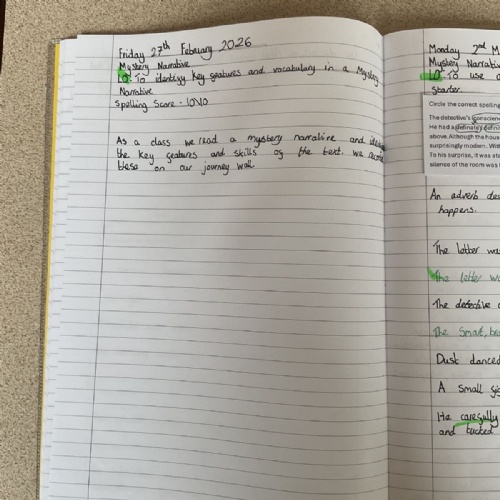 Friday 27th February 2026
Mystery Narrative
LO: To identify key features and vocabulary in a Mystery
Narrative
Spelling Score - 10/10
As a class we read a mystery narrative and
the key features and skills of the text. We
these on our journey wall.
Monday 2nd M
Mystery Narrativ
LO: To use a
Starter.
Circle the correct spellin
The detective's conscienc
He had a definately/defini
above. Although the hous
surprisingly modern. With
To his surprise, it was sta
silence of the room was b
An adverb des
happens.
The letter was
The letter wa
The detective
The Smart, br
Dust danced
A small sig
He carefully
and tucked